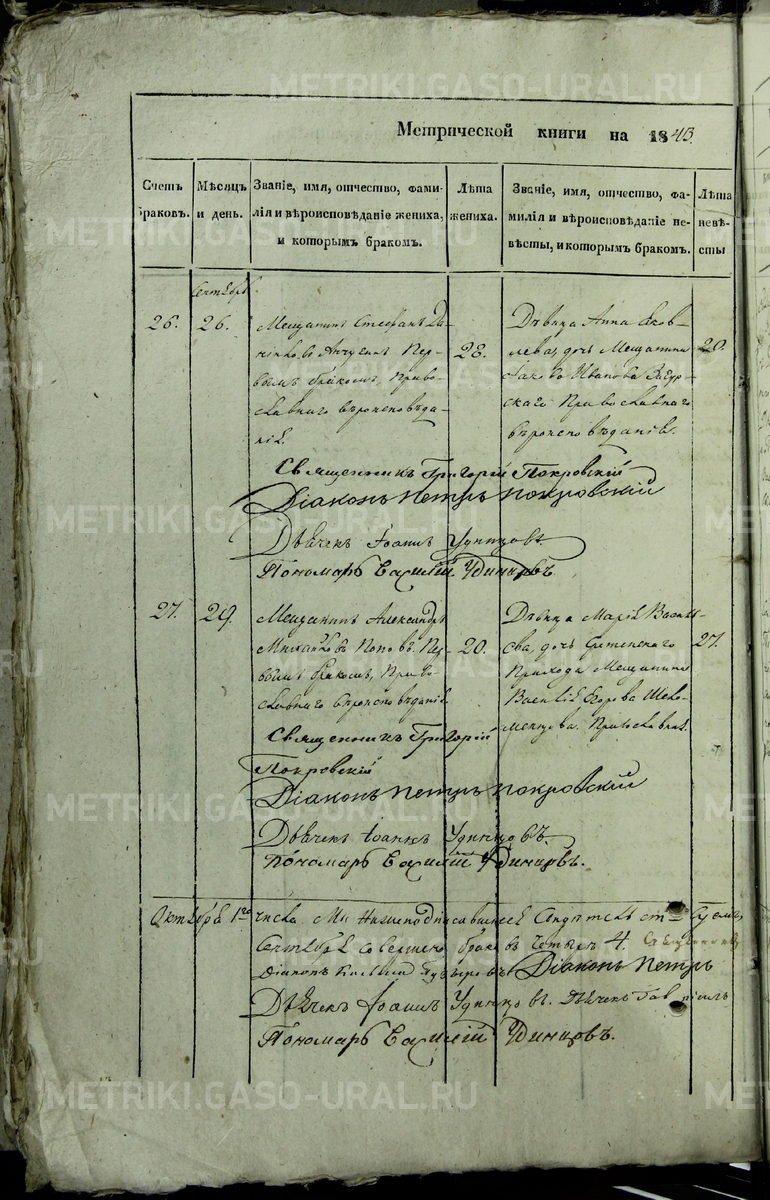 METRIKI.GASO-URAL.RU
Метрической книги на 1843.
Счетъ браковъ.
Мѣсяцъ и день.
Званіе, имя, отчество, фами-
лія и вѣроисповѣданіе жениха,
и которымъ бракомъ.
Лѣта жениха.
Званіе, имя, отчество, фа-
милія и вѣроисповѣданіе не-
вѣсты, и которымъ бракомъ.
Лѣта невѣ-
сты
Сентябрь
26.
26.
Мещанинъ Стефанъ Да-
Первымъ бракомъ, Право-
славнаго вѣроисповѣда-
нія.
28.
Дѣвица Анна Яков-
лева, дочь Мещанина
Якова Иванова
Православнаго
вѣроисповѣданія.
20.
Священникъ Григорій Покровскій
Діаконъ Петръ Покровскій
Дьячекъ Іоаннъ Удинцовъ
Пономарь Василій Удинцовъ.
27.
29.
Мещанинъ Александръ
Михайловъ Поповъ. Пер-
вымъ бракомъ, Право-
славнаго вѣроисповѣданія
20.
Дѣвица Марія Василь-
ева, дочь Срѣтенскаго
Прихода Мещанина
Василія Егорова
Православная.
27.
Священникъ Григорій
Покровскій
Діаконъ Петръ Покровскій
Дьячекъ Іоаннъ Удинцовъ.
Пономарь Василій Удинцовъ.
Октября 1го числа Мы нижеподписавшіеся
Сентябрѣ совершено браковъ четыре 4.
Діаконъ Діаконъ Петръ
Дьячекъ Іоаннъ Удинцовъ. Дьячекъ Гавріилъ
Пономарь Василій Удинцовъ.